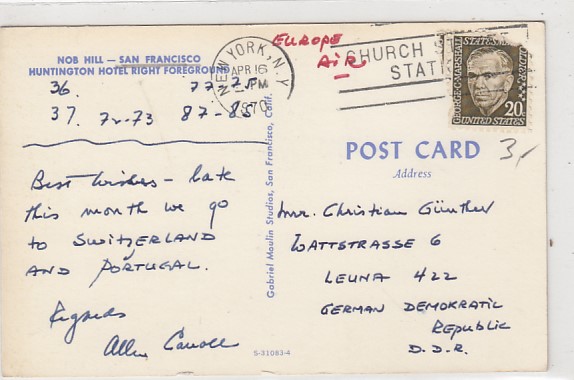 NOB HILL — SAN FRANCISCO
HUNTINGTON HOTEL RIGHT FOREGROUND
36. 77-78
37. 72-73 87-85
Best wishes - late
this month we go
to SWITZERLAND
AND PORTUGAL.
Regards
Allen
S-31083-4
Gabriel Moulin Studios, San Francisco, Calif.
EUROPE
AIR
NEW YORK, N.Y.
APR 16
PM
1970
CHURCH
STAT
GEORGE C. MARSHALL STATESMAN SOLDIER
20c
UNITED STATES
POST CARD
Address
3,-
Mr. Christian Günther
WATTSTRASSE 6
LEUNA 422
GERMAN DEMOKRATIC
REPUBLIC
D.D.R.